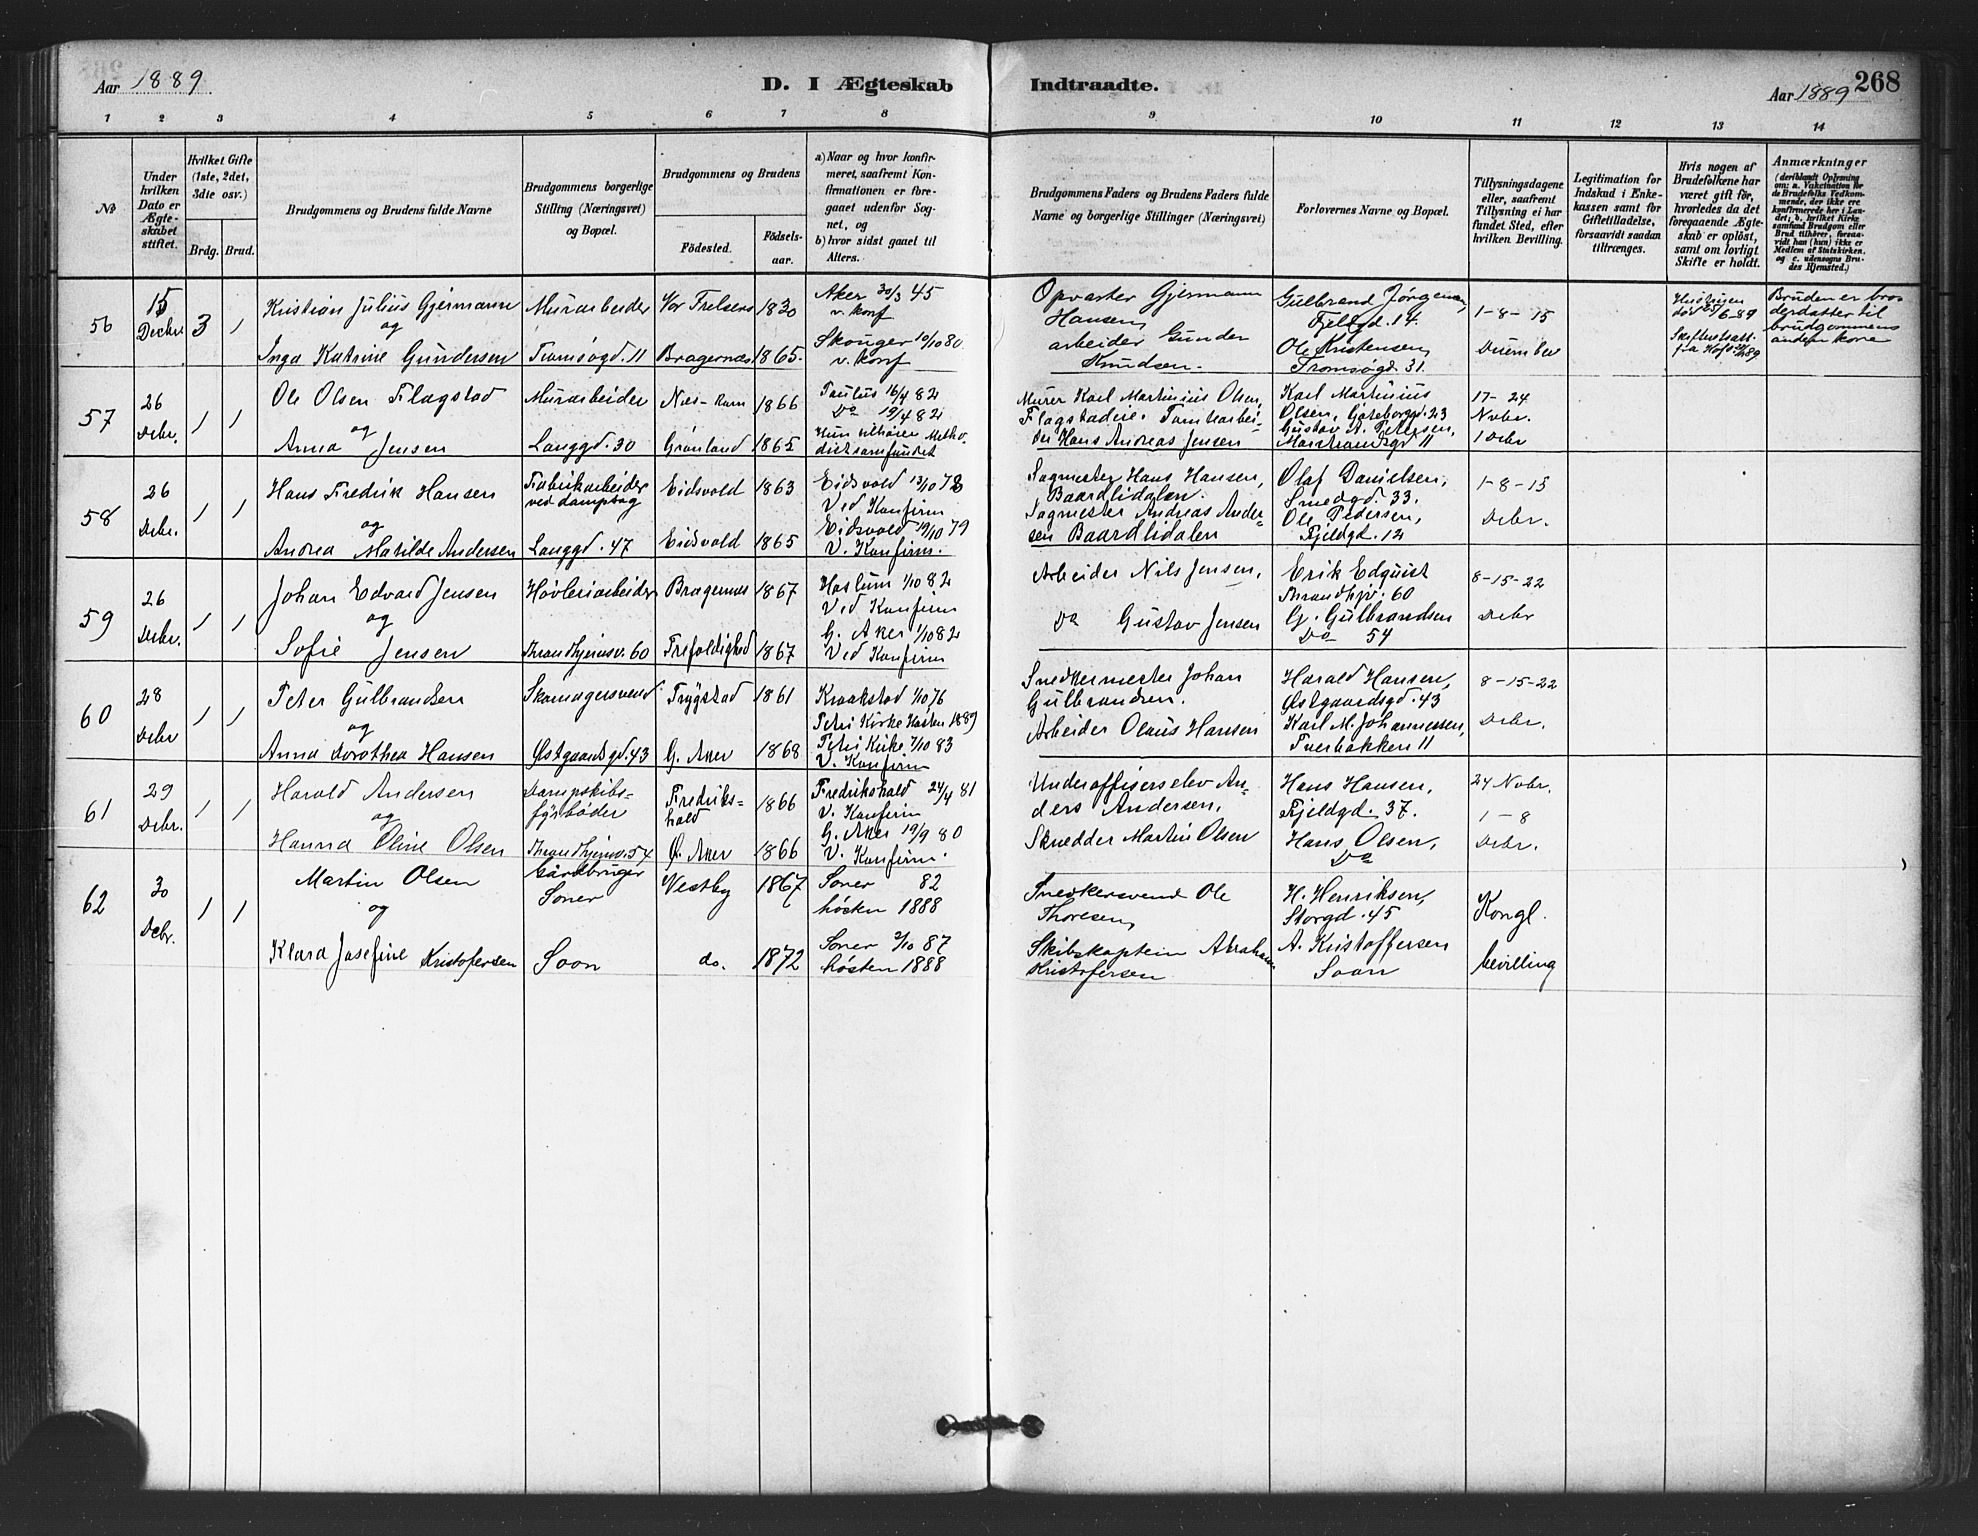 Aar 1889
D. I Ægteskab Indtraadte.
Aar 1889 268
1 2 3 4 5 6 7 8 9 10 11 12 13 14
No
Under hvilken Dato er Ægteskabet stiftet.
Hvilket Gifte (1ste, 2det, 3die osv.)
Brdg. Brud.
Brudgommens og Brudens fulde Navne
Brudgommens borgerlige Stilling (Næringsvei) og Bopæl.
Brudgommens og Brudens
Födested. Födsels-aar.
a) Naar og hvor konfirmeret, saafremt Konfirmationen er foregaaet udenfor Sognet, og
b) hvor sidst gaaet til Alters.
Brudgommens Faders og Brudens Faders fulde Navne og borgerlige Stillinger (Næringsvei)
Forlovernes Navne og Bopæl.
Tillysningsdagene eller, saafremt Tillysning ei har fundet Sted, efter hvilken Bevilling.
Legitimation for Indskud i Enkekassen samt for Giftetilladelse, forsaavidt saadan tiltrænges.
Hvis nogen af Brudefolkene har været gift för, hvorledes da det foregaaende Ægteskab er oplöst, samt om lovligt Skifte er holdt.
Anmærkninger (deriblandt Oplysning om: a. Vakcination for de Brudefolks Vedkommende, der ikke ere konfirmerede her i Landet; b. hvilket Kirkesamfund Brudgom eller Brud tilhörer, forsaavidt han (hun) ikke er Medlem af Statskirken, og c. udensogns Brudes Hjemsted.)
56 15 Decbr 3 1
Kristian Julius Gjermann
og
Inga Katrine Gundersen
Murarbeider
Tromsøgd. 11
Vor Frelsers 1830
Bragernæs 1865.
Aker 30/3 45
v. konf
Skouger 10/10 80.
v. konf
Opvarter Gjermann
Hansen,
arbeider Gunder
Knudsen.
Gulbrand Jørgensen,
Fjeldgd. 14.
Ole Kristensen,
Tromsøgd. 31.
1-8-15
December
6-89
Bruden er bro-
derdatter til
brudgommens
anden kone
57 26 Debr. 1 1
Ole Olsen Flagstad
og
Anna Jensen
Murarbeider
Langgd. 30
Næs-Rom 1866
Grønland 1865
Paulus 16/4 82
Do 19/4 82
Hun tilhører Metho-
distsamfundet
Murer Karl Martinius Olsen,
Flagstadeie. Tomtearbei-
der Hans Andreas Jensen
Karl Martinius
Olsen, Gøteborggd. 23
Gustav A. Petersen,
11
17-24
Novbr.
1 Debr
58 26 Debr. 1 1
Hans Fredrik Hansen
og
Andrea Matilde Andersen
Fabrikarbeider
ved dampsag
Langgd. 47
Eidsvold 1863
Eidsvold 1865
Eidsvold 13/10 78
Ved Konfirm
Eidsvold 19/10 79
V. Konfirm.
Sagmester Hans Hansen,
Baardlidalen.
Sagmester Andreas Ander-
sen Baardlidalen
Olaf Danielsen,
Smedgd. 33.
Ole Pedersen,
Fjeldgd. 12
1-8-15
Debr.
59 26 Debr. 1 1
Johan Edvard Jensen
og
Sofie Jensen
Høvleriarbeider
Thrandhjemsv. 60
Bragernæs 1867
Trefoldighed 1867
Haslum 1/10 82
Ved Konfirm
G. Aker 1/10 82
Ved Konfirm
Arbeider Nils Jensen,
Do Gustav Jensen
Erik Edquist
Thrandhjv. 60
G. Gulbrandsen
Do 54
8-15-22
Debr
60 28 Debr 1 1
Peter Gulbrandsen
og
Anna Dorothea Hansen
Skomagersvend
Østgaardsgd. 43
Trygstad 1861
G. Aker 1868
Kraakstad 1/10 76
Petri Kirke Høsten 1889
Petri Kirke 7/10 83
V. Konfirm
Snedkermester Johan
Gulbrandsen.
Arbeider Olaus Hansen
Harald Hansen,
Østgaardsgd. 43
Karl M. Johannessen,
Tverbakken 11
8-15-22
Debr.
61 29 Debr. 1 1
Harald Andersen
og
Hanna Oline Olsen
Dampskibs-
fyrbøder
Thrandhjemsv. 54
Fredriks-
hald 1866
Ø. Aker 1866
Fredrikshald 24/4 81
V. Konfirm
G. Aker 19/9 80
V. Konfirm.
Underoffiserselev An-
ders Andersen,
Skredder Martin Olsen
Hans Hansen,
Fjeldgd. 37.
Hans Olsen,
Do
24 Nobr.
1-8
Debr.
62 30 Debr. 1 1
Martin Olsen
og
Klara Josefine Kristofersen
Gårdbruger
Soner
Soon
Vestby 1867
do. 1872
Soner 82
høsten 1888
Soner 2/10 87
høsten 1888
Snedkersvend Ole
Thoresen,
Skibskaptein Abraham
Kristofersen
H. Henriksen,
Storgd. 45
A. Kristoffersen
Soon
Kongl.
bevilling